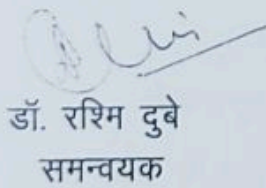 डॉ. रश्मि दुबे
समन्वयक